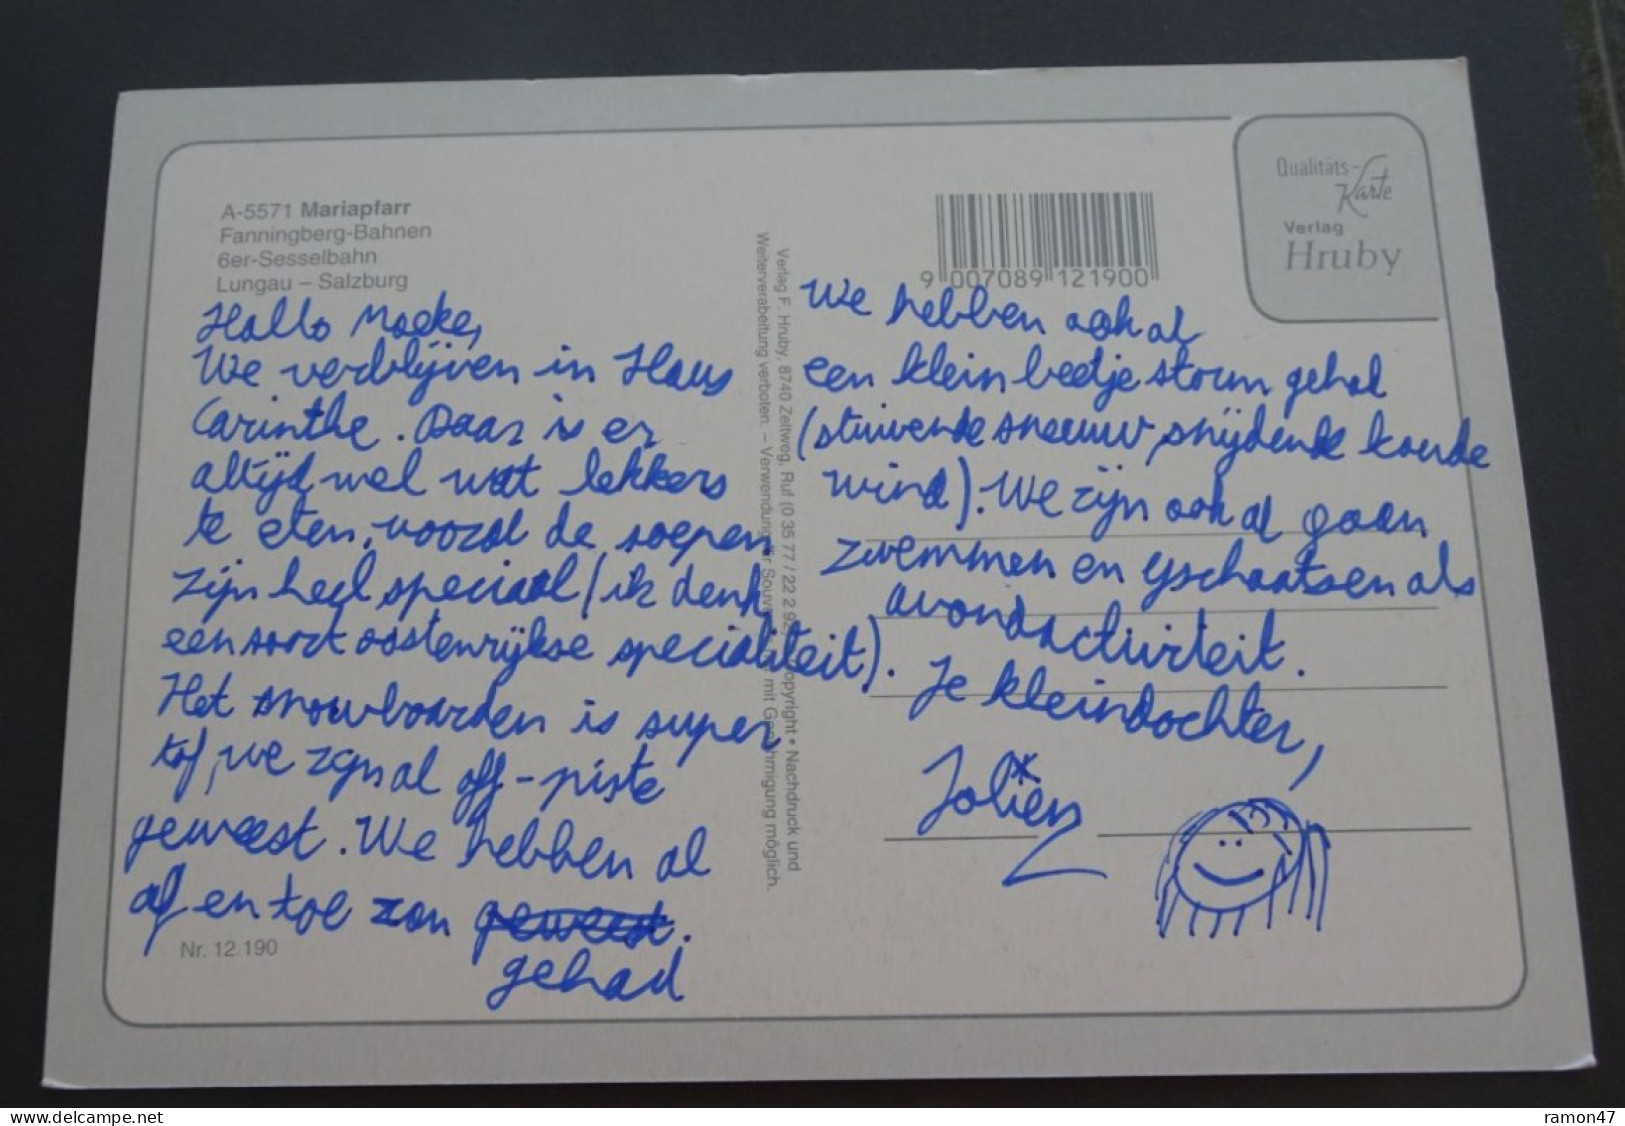 A-5571 Mariapfarr
Fanningberg-Bahnen
6er-Sesselbahn
Lungau – Salzburg
Hallo Moeke,
We verblijven in Haus
Carinthe. Daar is er
altijd wel wat lekkers
te eten, vooral de soepen
zijn heel speciaal (ik denk
een soort oostenrijkse specialiteit).
Het snowboarden is super
tof, we zijn al off-piste
geweest. We hebben al
af en toe zon geweest.
gehad
Nr. 12.190
Verlag F. Hruby, 8740 Zeltweg, Ruf (0 35 77 / 22 2 92 Copyright • Nachdruck und
Weiterverarbeitung verboten. – Verwendung für Souv mit Genehmigung möglich.
9 007089 121900
Qualitäts-
Karte
Verlag
Hruby
We hebben ook al
een klein beetje storm gehad
(stuivende sneeuw, snijdende koude
wind). We zijn ook al gaan
zwemmen en ijschaatsen als
avondactiviteit.
Je kleindochter,
Jolien
www.delcampe.net
ramon47